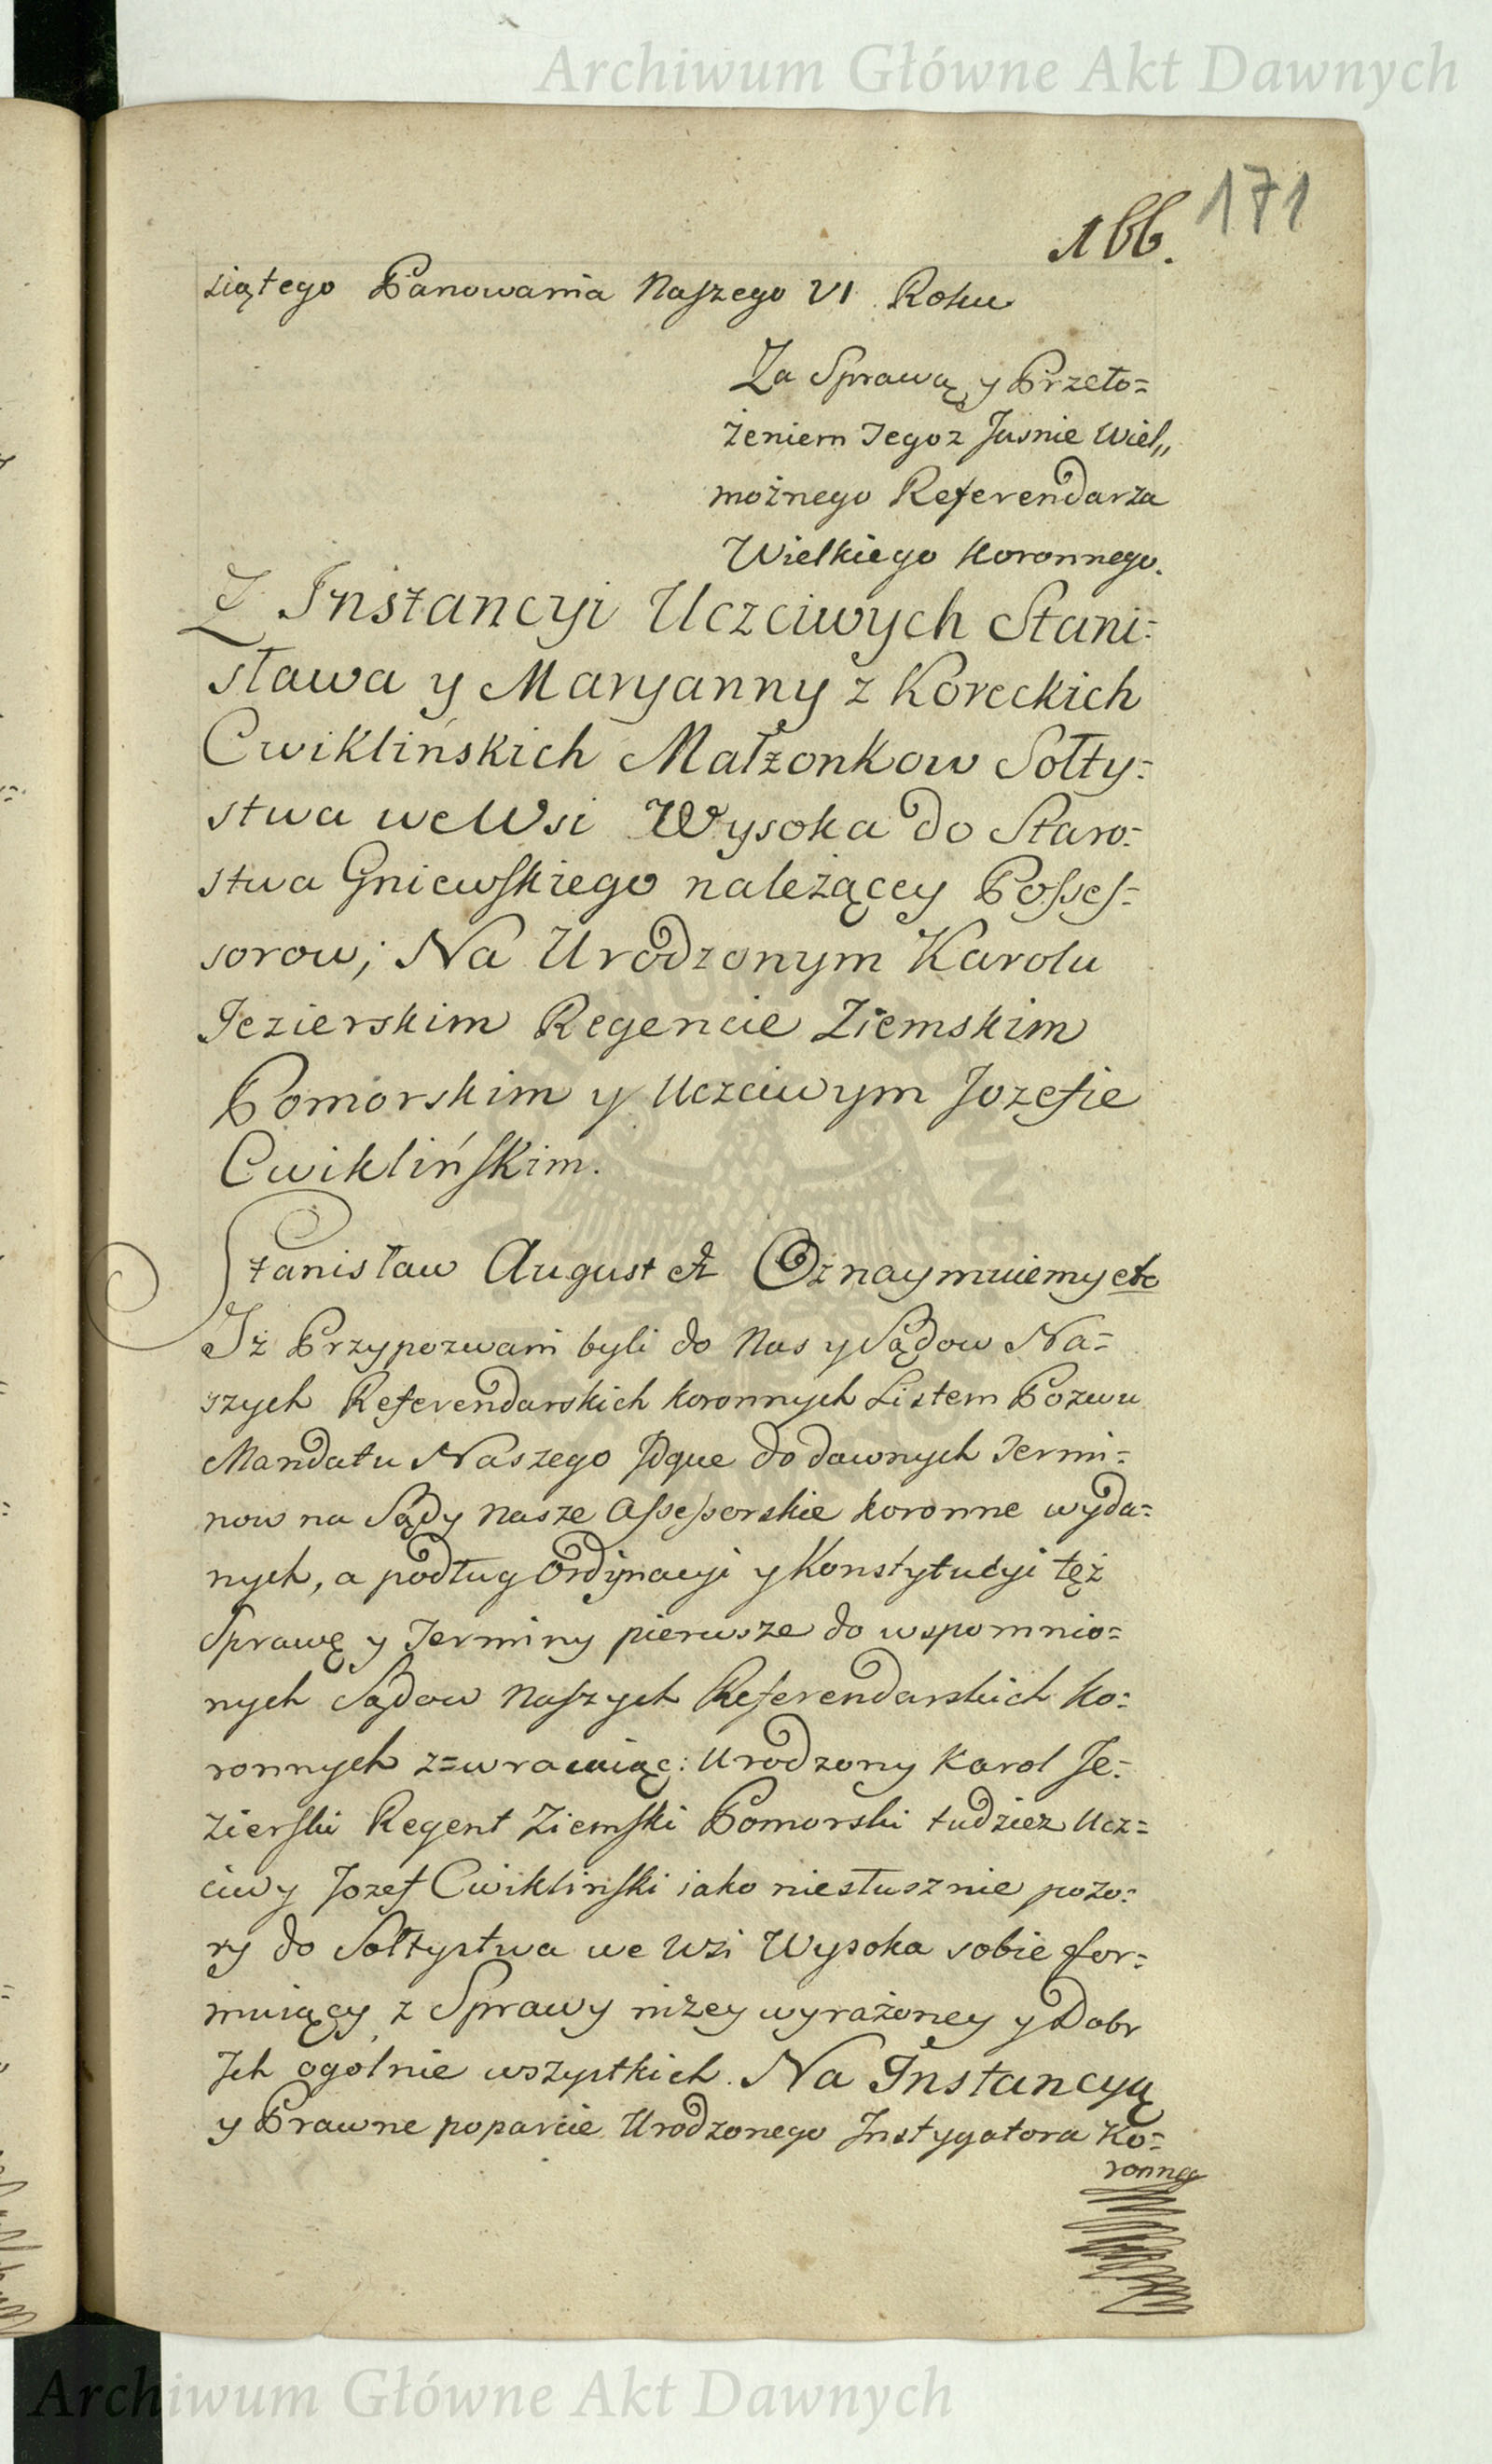 Archiwum Główne Akt Dawnych
171
166.
ziątego Panowania Naszego VI Roku
Za Sprawą y Przeło=
żeniem Tegoz Jasnie Wiel„
możnego Referendarza
Wielkiego Koronnego.
Z Instancyi Uczciwych Stani=
sława y Maryanny z Koreckich
Cwiklińskich Małżonkow Sołty=
stwa we Wsi Wysoka do Staro=
stwa Gniewskiego należącey Posses=
sorow; Na Urodzonym Karolu
Jezierskim Regencie Ziemskim
Pomorskim y Uczciwym Jozefie
Cwiklińskim.
Stanisław August &c Oznaymuiemy etc
Iż Przypozwani byli do Nas y Sądow Na=
szych Referendarskich koronnych Listem Pozwu
Mandatu Naszego do dawnych Termi=
now na Sądy nasze Assessorskie koronne wyda=
nych, a podług Ordynacyi y Konstytucyi tęż
Sprawę y Terminy pierwsze do wspomnio=
nych Sądow naszych Referendarskich Ko=
ronnych z=wracaiąc: Urodzony Karol Je=
zierski Regent Ziemski Pomorski tudziez Ucz=
ciwy Jozef Cwiklinski iako niesłusznie pozo=
ry do Sołtystwa we Wsi Wysoka sobie for=
muiący, z Sprawy niżey wyrażoney y Dobr
Ich ogólnie wszystkich. Na Instancyą
y Prawne poparcie Urodzonego Instygatora Ko=
ronneg
Archiwum Główne Akt Dawnych